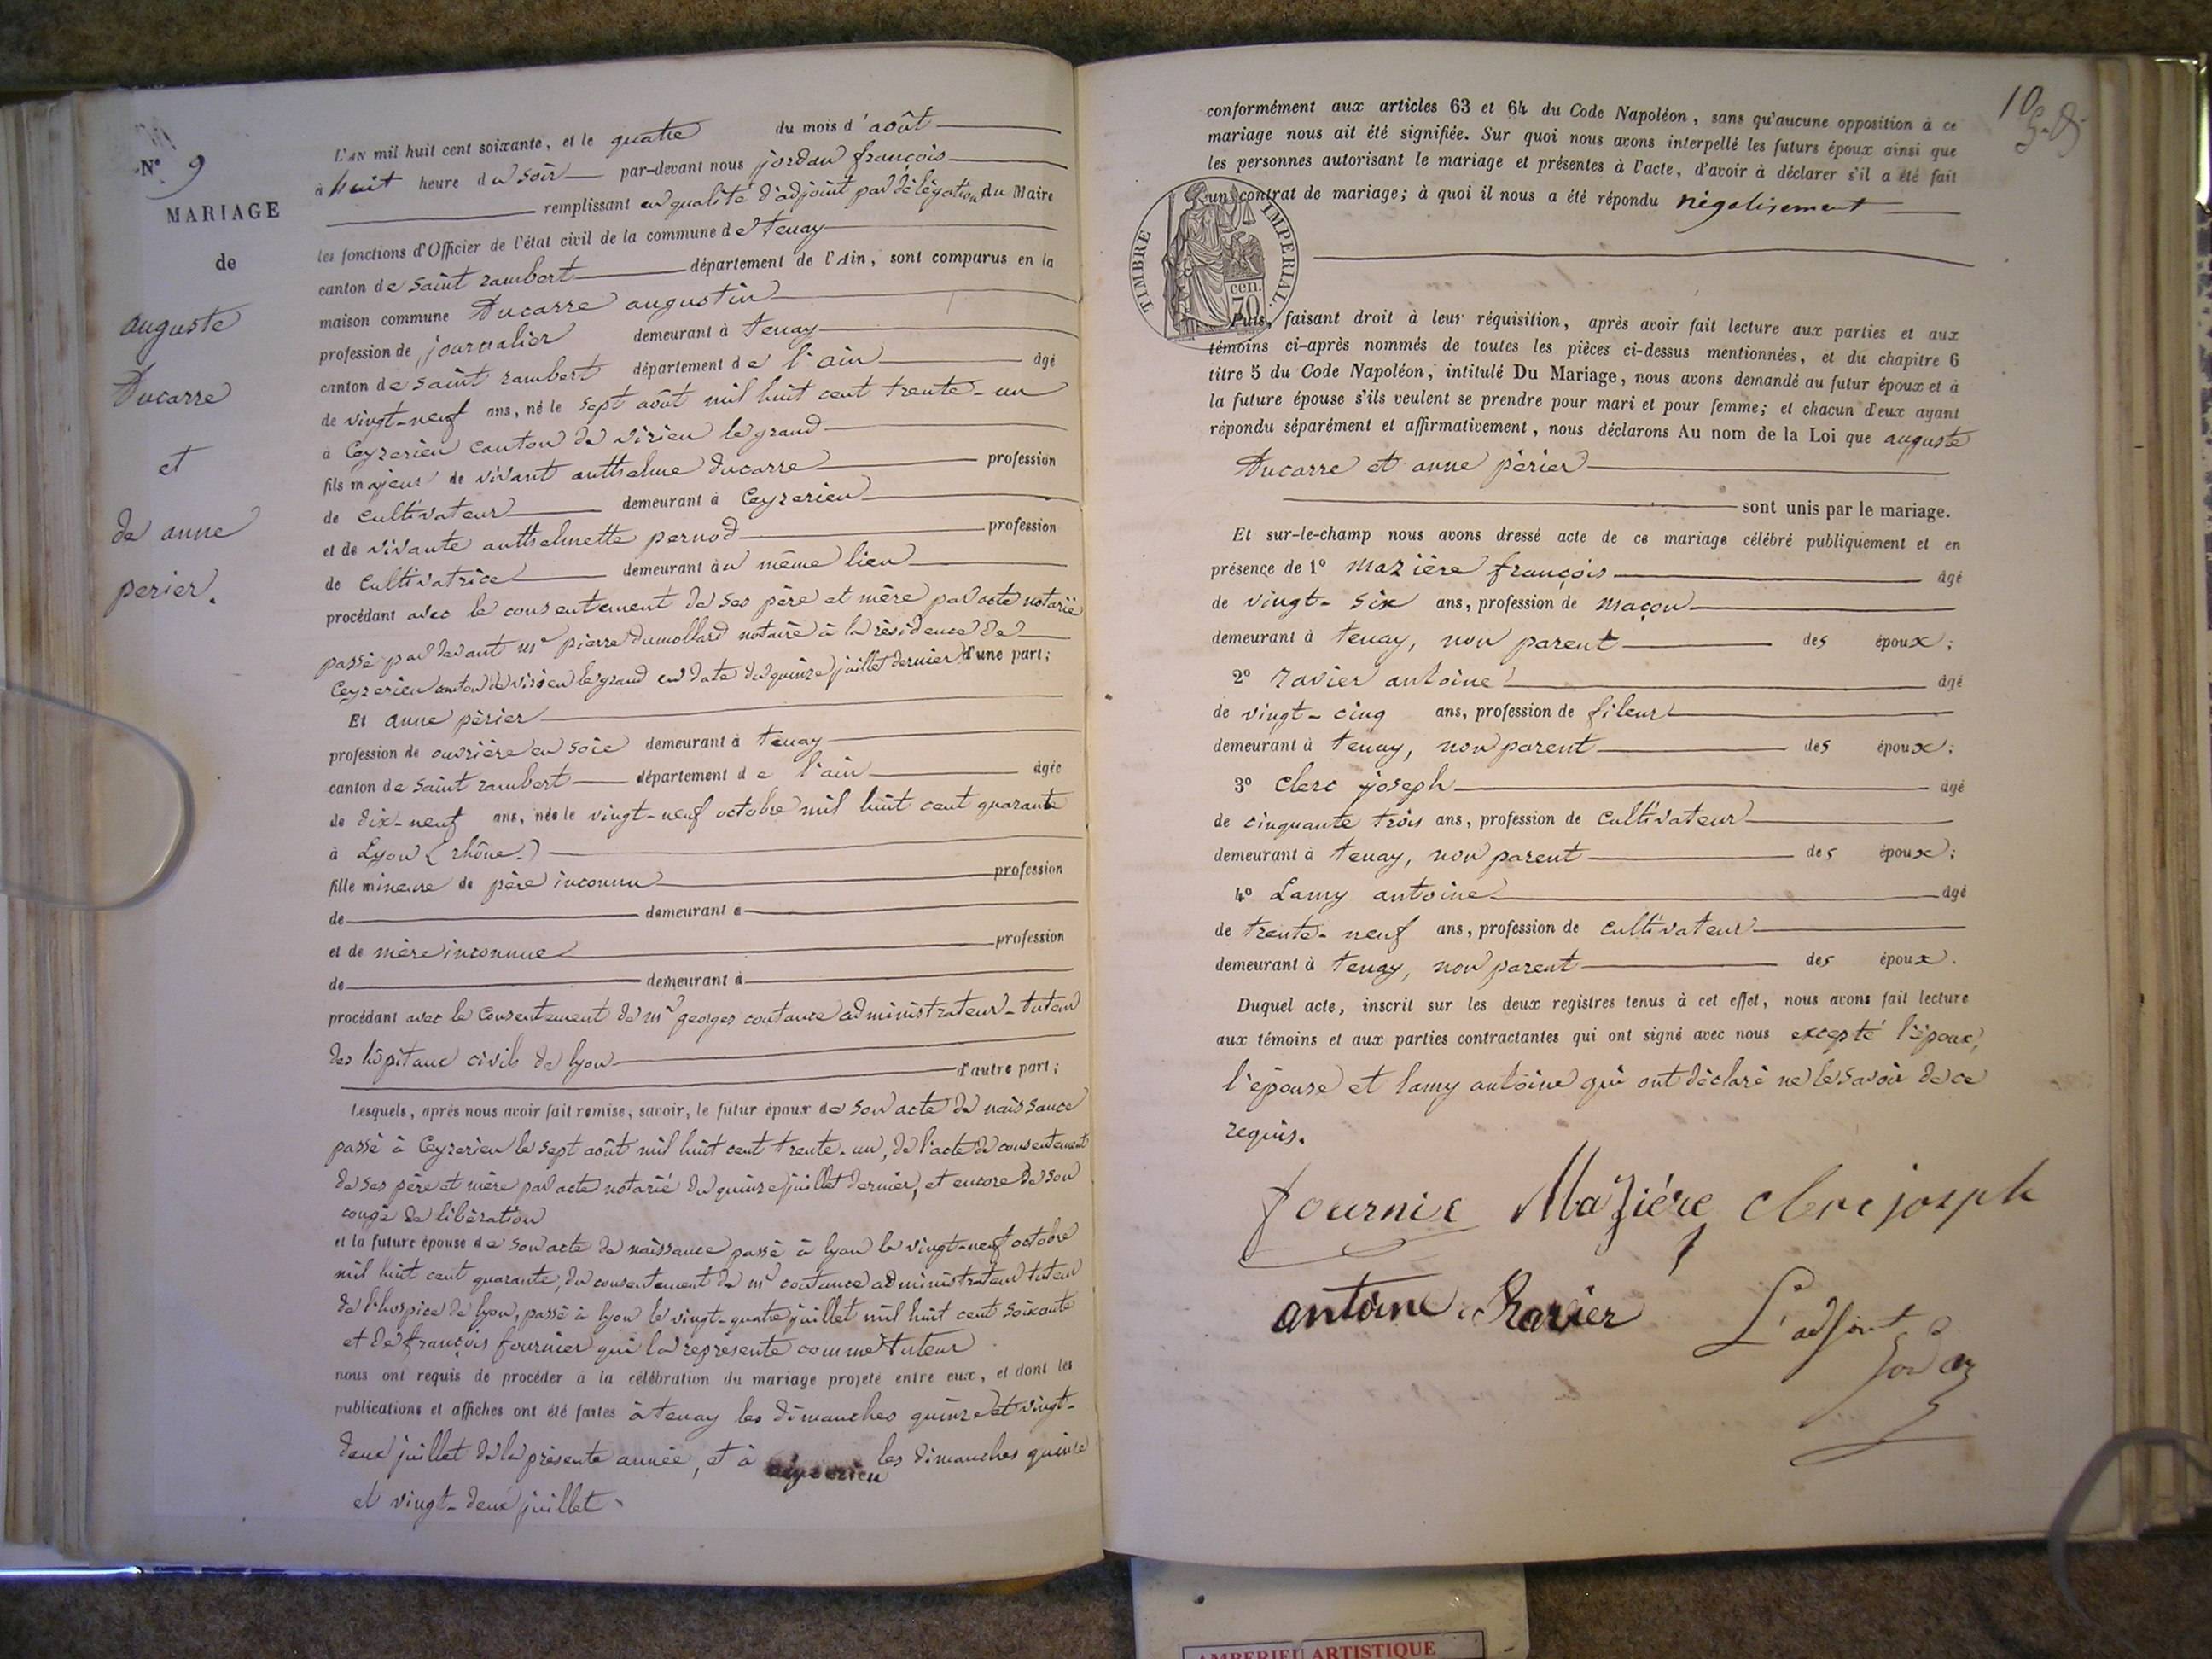 N° 9
MARIAGE
de
auguste
Ducarre
et
de anne
perier.
L'AN mil huit cent soixante, et le quatre du mois d'août
à huit heure du soir par-devant nous jordan françois
remplissant en qualité d'adjoint par délégation du Maire
les fonctions d'Officier de l'état civil de la commune de tenay
canton de saint rambert département de l'Ain, sont comparus en la
maison commune Ducarre augustin
profession de journalier demeurant à tenay
canton de saint rambert département de l'ain âgé
de vingt-neuf ans, né le sept août mil huit cent trente-un
à Ceyzerieu canton de virieu le grand
fils majeur de vivant anthelme ducarre profession
de cultivateur demeurant à Ceyzerieu
et de vivante anthelmette pernod profession
de cultivatrice demeurant au même lieu
procédant avec le consentement de ses père et mère par acte notarié
passé par devant me pierre Dumollard notaire à la résidence de
Ceyzerieu canton de virieu le grand en date du quinze juillet dernier d'une part;
Et anne périer
profession de ouvrière en soie demeurant à tenay
canton de saint rambert département de l'ain âgée
de dix-neuf ans, née le vingt-neuf octobre mil huit cent quarante
à Lyon (rhône)
fille mineure de père inconnu profession
de demeurant à
et de mère inconnue profession
de demeurant à
procédant avec le consentement de mr georges coutance administrateur-tuteur
des hôpitaux civils de lyon
d'autre part;
Lesquels, après nous avoir fait remise, savoir, le futur époux de son acte de naissance
passé à Ceyzerieu le sept août mil huit cent trente-un, de l'acte de consentement
de ses père et mère par acte notarié du quinze juillet dernier, et encore de son
congé de libération
et la future épouse de son acte de naissance passé à lyon le vingt-neuf octobre
mil huit cent quarante, du consentement de mr coutance administrateur tuteur
de l'hospice de lyon, passé à lyon le vingt-quatre juillet mil huit cent soixante
et de françois fournier qui la représente comme tuteur
nous ont requis de procéder à la célébration du mariage projeté entre eux, et dont les
publications et affiches ont été faites à tenay les dimanches quinze et vingt-
deux juillet de la présente année, et à ceyzerieu les dimanches quinze
et vingt-deux juillet
10
conformément aux articles 63 et 64 du Code Napoléon, sans qu'aucune opposition à ce
mariage nous ait été signifiée. Sur quoi nous avons interpellé les futurs époux ainsi que
les personnes autorisant le mariage et présentes à l'acte, d'avoir à déclarer s'il a été fait
un contrat de mariage; à quoi il nous a été répondu négativement
TIMBRE IMPERIAL.
70 cen.
Puis, faisant droit à leur réquisition, après avoir fait lecture aux parties et aux
témoins ci-après nommés de toutes les pièces ci-dessus mentionnées, et du chapitre 6
titre 5 du Code Napoléon, intitulé Du Mariage, nous avons demandé au futur époux et à
la future épouse s'ils veulent se prendre pour mari et pour femme; et chacun d'eux ayant
répondu séparément et affirmativement, nous déclarons Au nom de la Loi que auguste
Ducarre et anne périer
sont unis par le mariage.
Et sur-le-champ nous avons dressé acte de ce mariage célébré publiquement et en
présence de 1° mazière françois âgé
de vingt-six ans, profession de maçon
demeurant à tenay, non parent des époux;
2° ravier antoine âgé
de vingt-cinq ans, profession de fileur
demeurant à tenay, non parent des époux;
3° clerc joseph âgé
de cinquante trois ans, profession de cultivateur
demeurant à tenay, non parent des époux;
4° Lamy antoine âgé
de trente-neuf ans, profession de cultivateur
demeurant à tenay, non parent des époux.
Duquel acte, inscrit sur les deux registres tenus à cet effet, nous avons fait lecture
aux témoins et aux parties contractantes qui ont signé avec nous excepté l'époux,
l'épouse et lamy antoine qui ont déclaré ne le savoir de ce
requis.
fournie Mazière clerc joseph
antoine Ravier L'adjoint
Jordan
AMBERIEU ARTISTIQUE